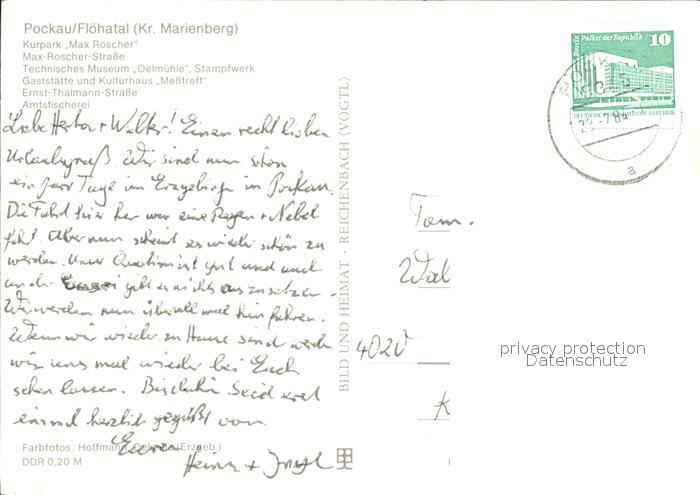 Pockau/Flöhatal (Kr. Marienberg)
Kurpark „Max Roscher“
Max-Roscher-Straße
Technisches Museum „Oelmühle“, Stampfwerk
Gaststätte und Kulturhaus „Meßtreff“
Ernst-Thälmann-Straße
Amtsfischerei
Liebe Herta + Walter! Einen recht lieben
Urlaubsgruß. Wir sind nun schon
ein paar Tage im Erzgebirge in Pockau.
Die Fahrt hier her war eine Regen + Nebel
fahrt. Aber nun scheint es wieder schön zu
werden. Unser Quartier ist gut und auch
an der geht es nichts auszusetzen.
Wir werden nun überall mal hin fahren.
Wenn wir wieder zu Hause sind werden
wir uns mal wieder bei Euch
sehen lassen. Bis dahin seid erst
einmal herzlich gegrüßt von
Euren
Heinz +
Farbfotos: Hoffmann, (Erzgeb.)
DDR 0,20 M
BILD UND HEIMAT · REICHENBACH (VOGTL)
Berlin Palast der Republik
10
DEUTSCHE DEMOKRATISCHE REPUBLIK
a
Fam.
Wal
4020
K
privacy protection
Datenschutz